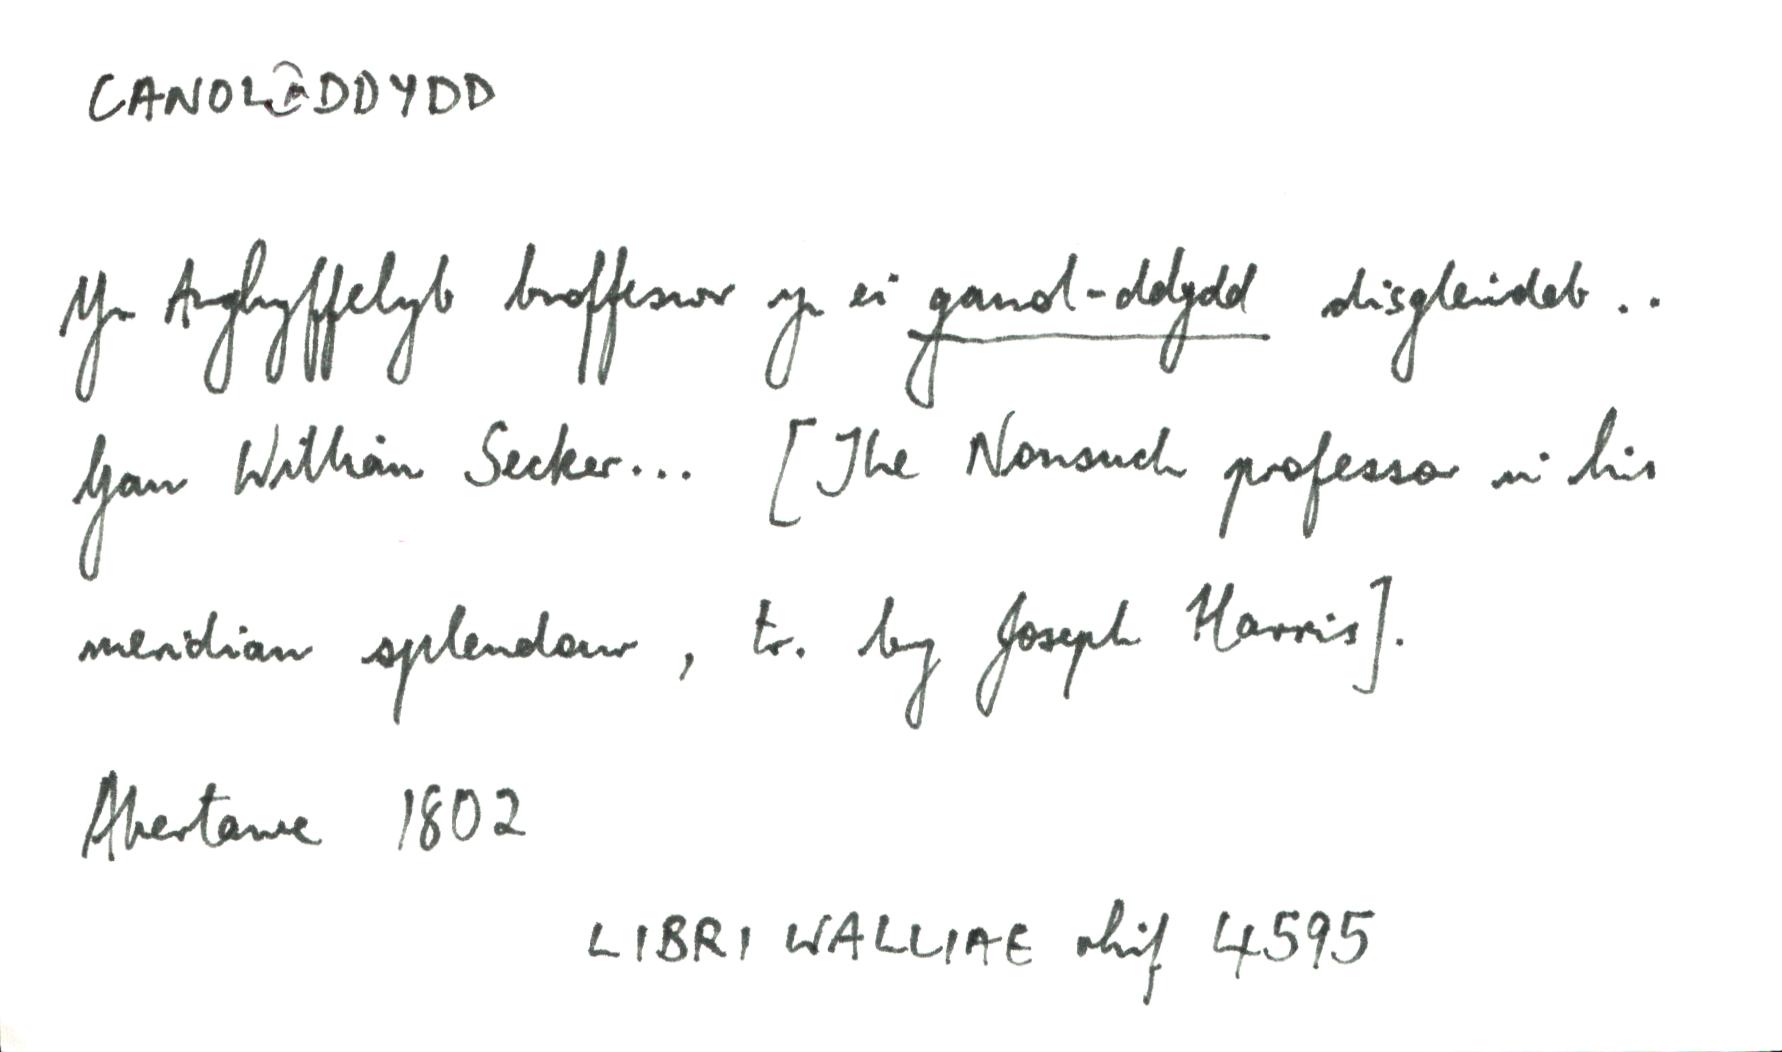 CANOL(A)DDYDD
Yr Anghyffelyb broffeswr yn ei ganol-ddydd disgleirdeb..
Gan William Secker... [The Nonsuch professor in his
meridian splendour, tr. by Joseph Harris].
Abertawe 1802
LIBRI WALLIAE rhif 4595